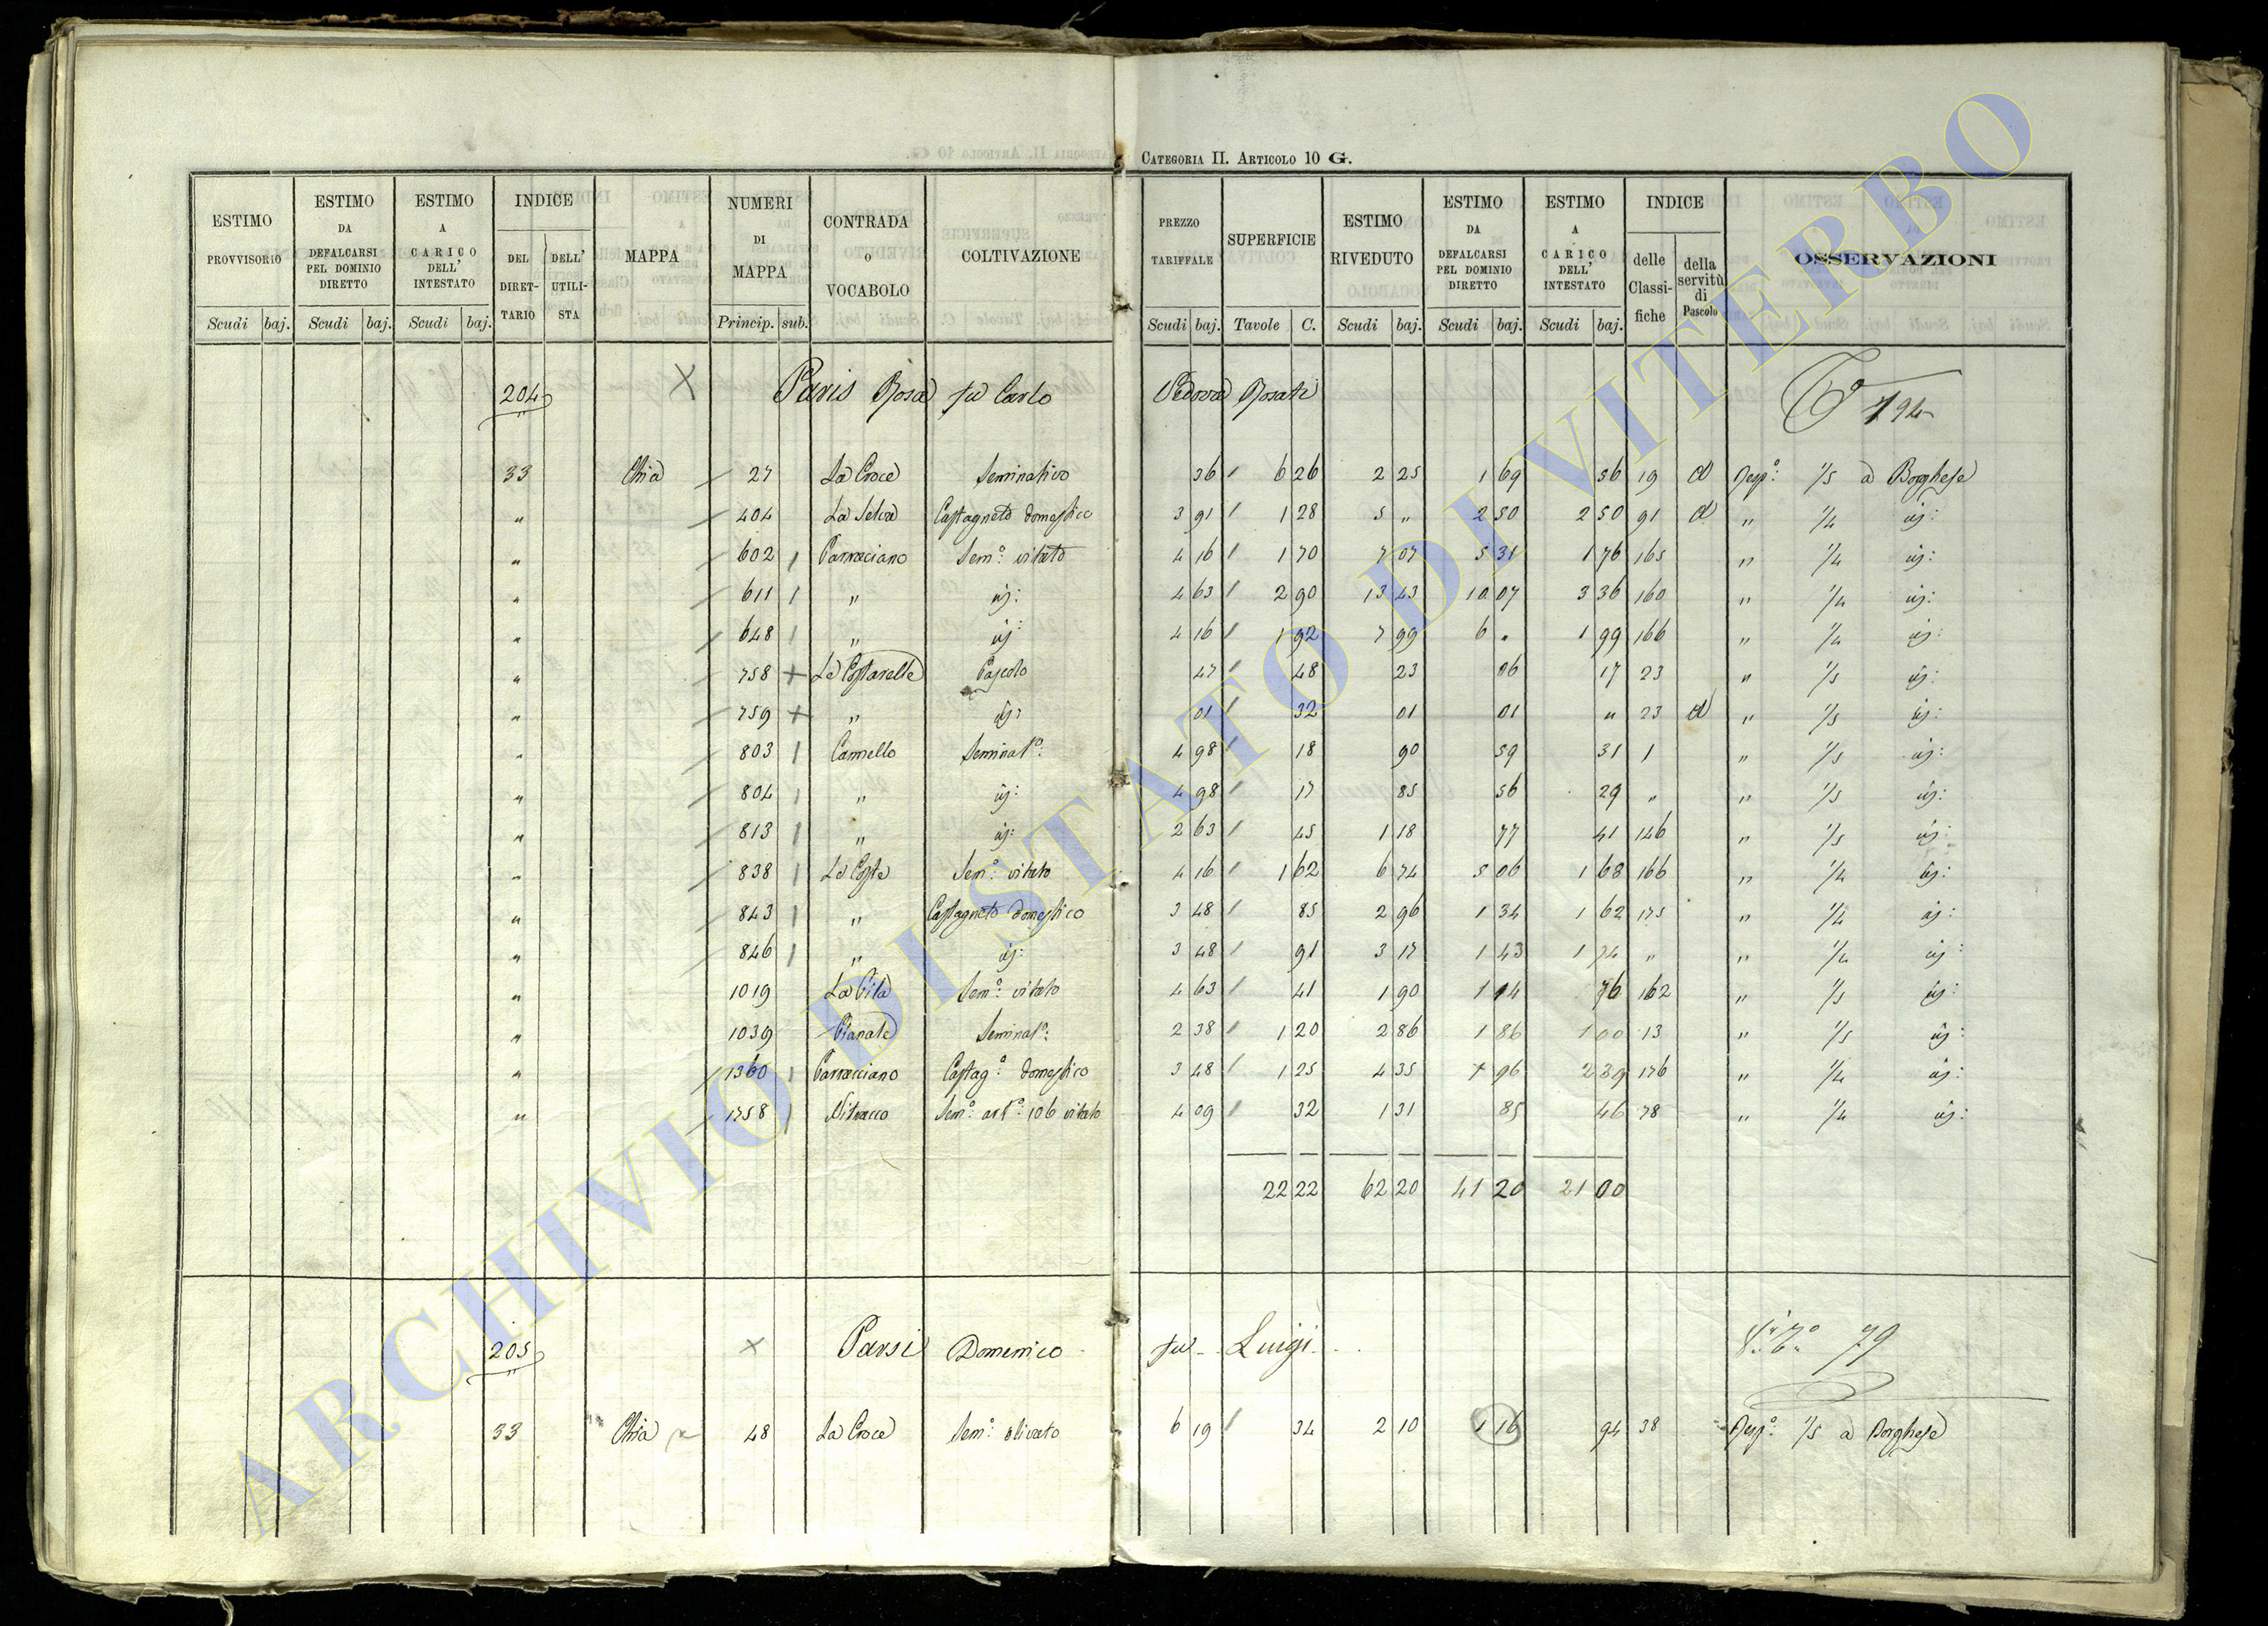 CATEGORIA II. ARTICOLO 10 G.
ESTIMO PROVVISORIO Scudi baj. ESTIMO DA DEFALCARSI PEL DOMINIO DIRETTO Scudi baj. ESTIMO A CARICO DELL' INTESTATO Scudi baj. INDICE DEL DIRETTARIO DELL' UTILISTA MAPPA NUMERI DI MAPPA Princip. sub. CONTRADA O VOCABOLO COLTIVAZIONE
PREZZO TARIFFALE Scudi baj. SUPERFICIE Tavole C. ESTIMO RIVEDUTO Scudi baj. ESTIMO DA DEFALCARSI PEL DOMINIO DIRETTO Scudi baj. ESTIMO A CARICO DELL' INTESTATO Scudi baj. INDICE delle Classifiche della servitù di Pascolo OSSERVAZIONI
204 X Paris Rosa fu Carlo Vedova Rosati 194
33 Chia 27 La Croce Seminativo 36 6 26 2 25 1 69 56 19 d Resp: 1/5 a Borghese
" 404 La Selva Castagneto domestico 3 91 1 28 5 " 2 50 2 50 91 d " 1/4 id:
" 602 Parracciano Sem: vitato 4 16 1 70 7 07 5 31 1 76 165 " 1/4 id:
" 611 " id: 4 63 2 90 13 43 10 07 3 36 160 " 1/4 id:
" 648 " id: 4 16 1 92 7 99 6 " 1 99 166 " 1/4 id:
" 758 + Le Costarelle Pascolo 47 48 23 06 17 23 " 1/5 id:
" 759 + " id: 01 32 01 01 " 23 d " 1/5 id:
" 803 Cannello Seminat: 4 98 18 90 59 31 1 " 1/5 id:
" 804 " id: 4 98 17 85 56 29 " " 1/5 id:
" 813 " id: 2 63 45 1 18 77 41 146 " 1/5 id:
" 838 Le Coste Sem: vitato 4 16 1 62 6 74 5 06 1 68 166 " 1/4 id:
" 843 " Castagneto domestico 3 48 85 2 96 1 34 1 62 175 " 1/4 id:
" 846 " id: 3 48 91 3 17 1 43 1 74 " " 1/4 id:
" 1019 La Vita Sem: vitato 4 63 41 1 90 1 14 76 162 " 1/5 id:
" 1039 Pianale Seminat: 2 38 1 20 2 86 1 86 1 00 13 " 1/5 id:
" 1360 Parracciano Castag: domestico 3 48 1 25 4 35 1 96 2 39 176 " 1/4 id:
" 1758 Sem: art: 106 vitato 4 09 32 1 31 85 46 78 " 1/4 id:
22 22 62 20 41 20 21 00
205 x Parsi Domenico fu Luigi 79
33 Chia 48 La Croce Sem: olivato 6 19 34 2 10 1 16 94 38 Resp: 1/5 a Borghese
ARCHIVIO DI STATO DI VITERBO